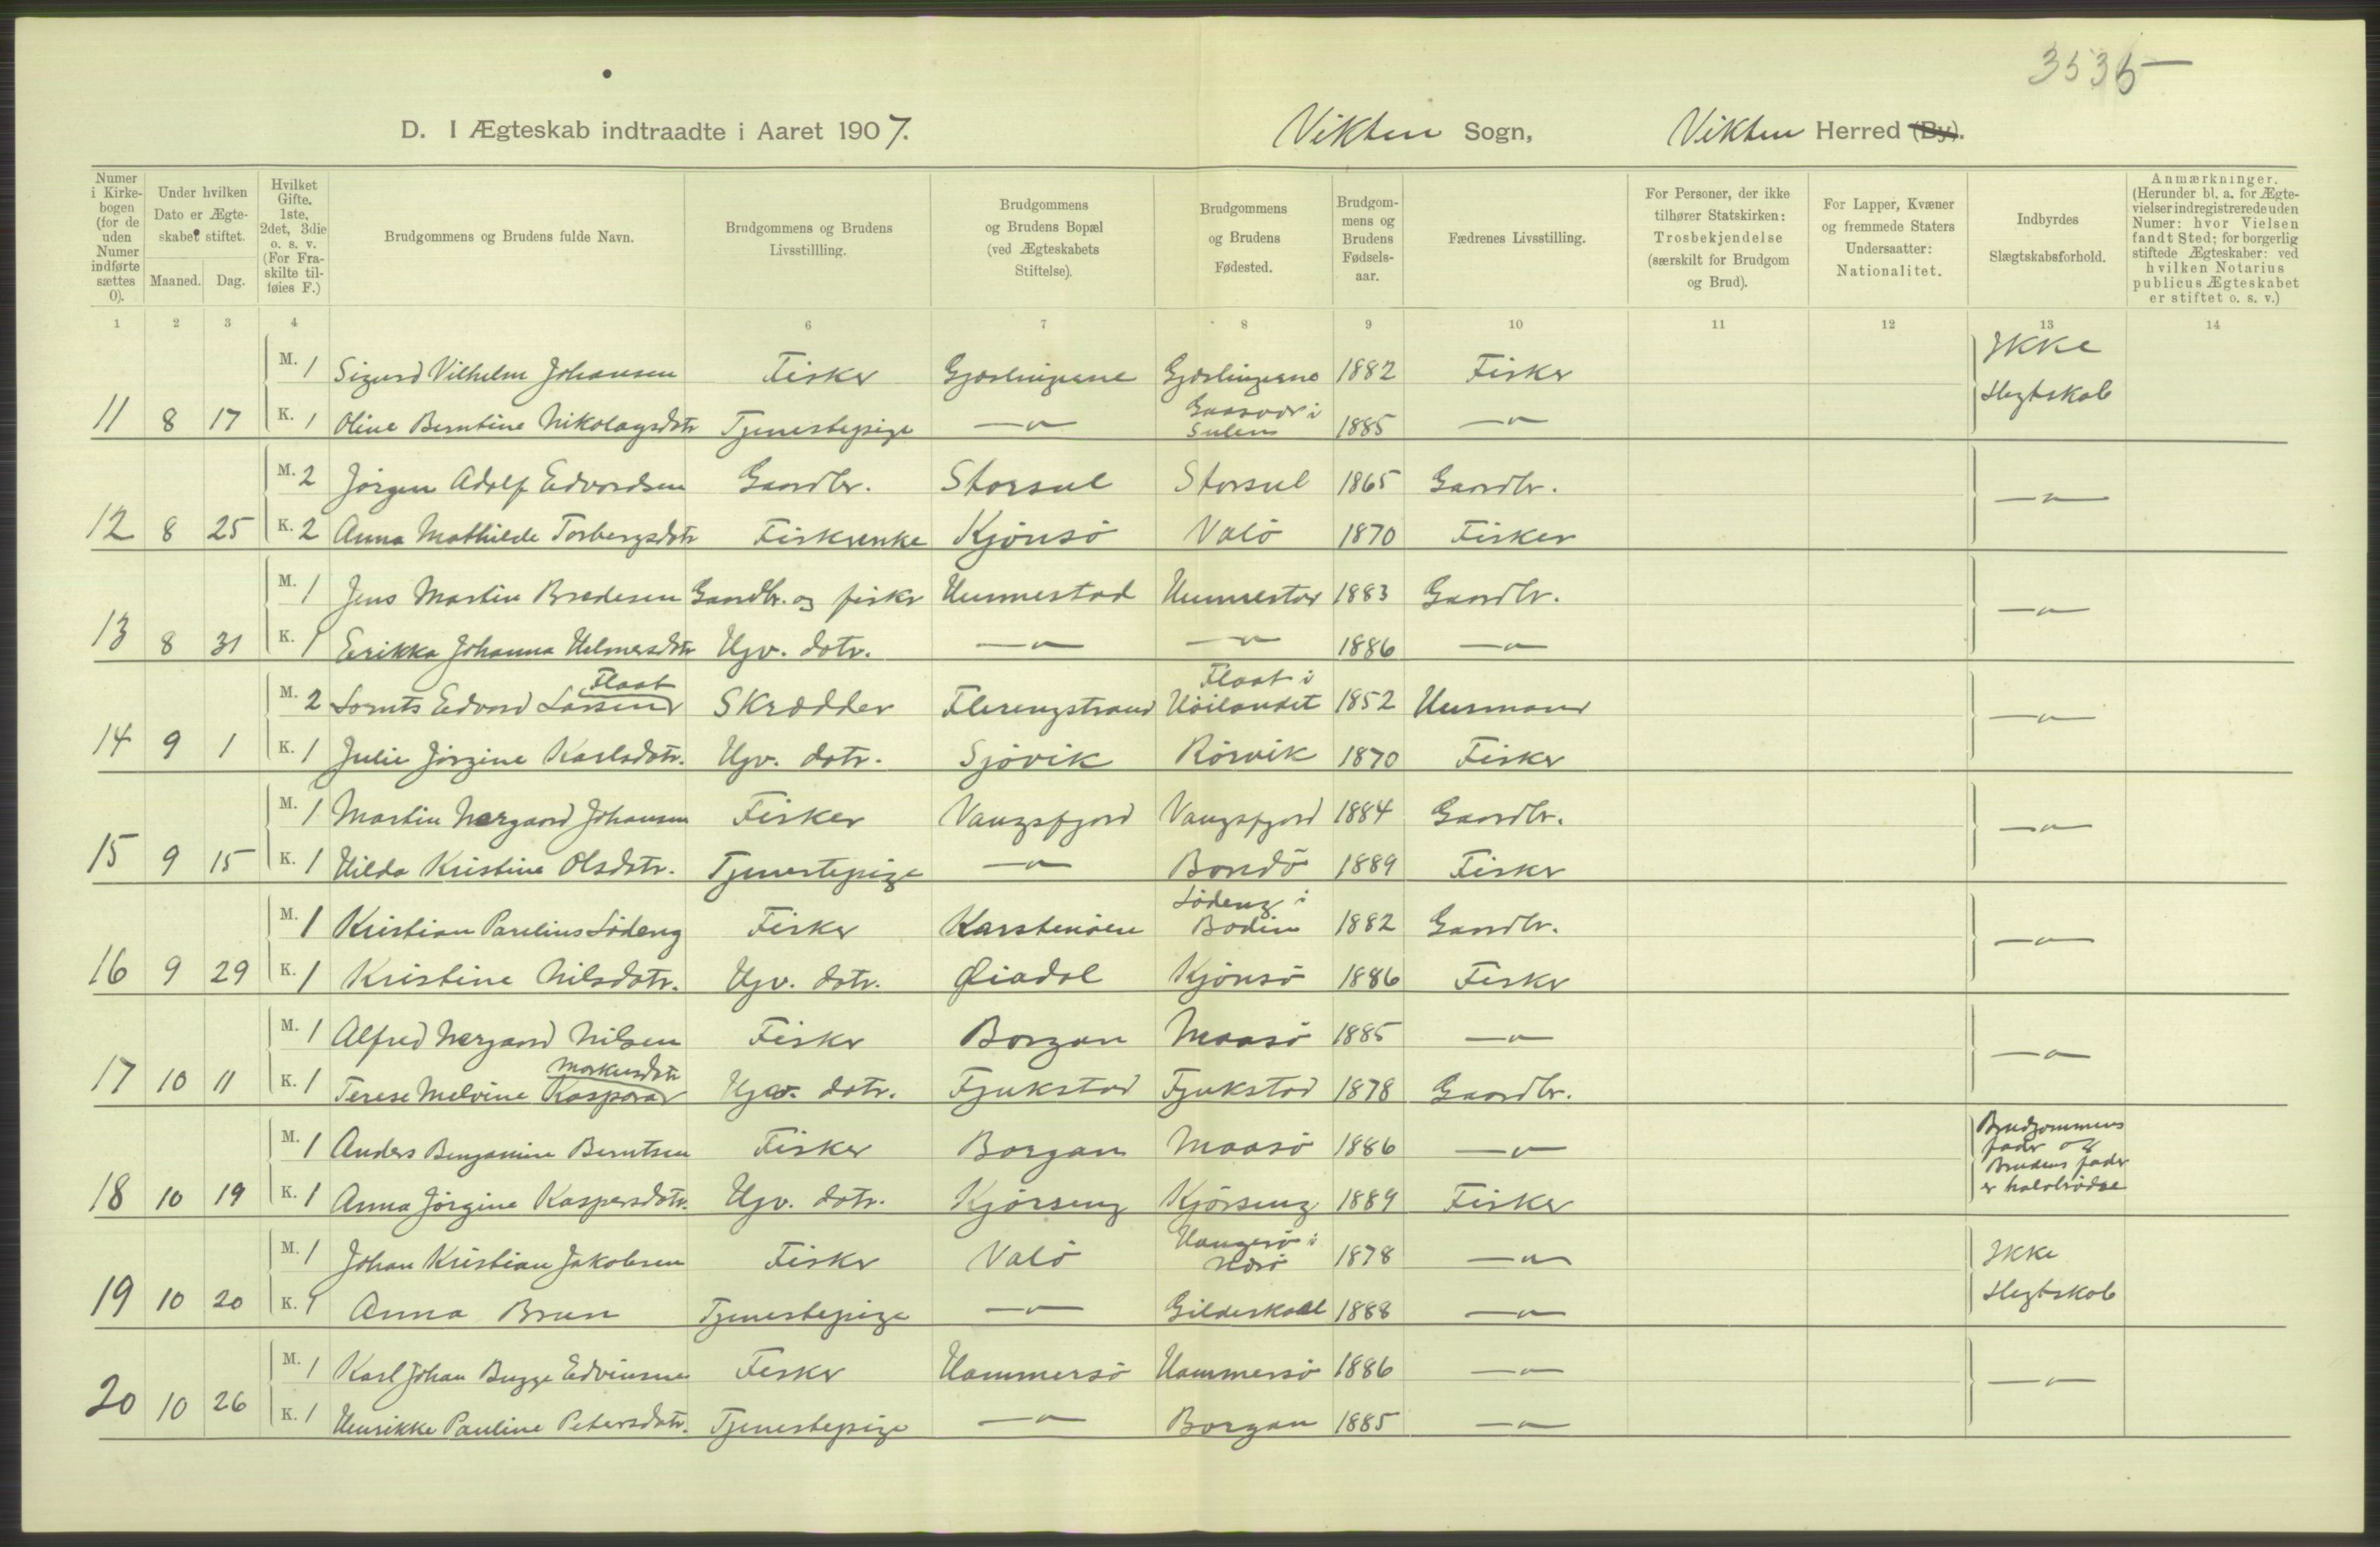 3535
D. I Ægteskab indtraadte i Aaret 1907. Vikten Sogn, Vikten Herred (By).
Numer i Kirke-bogen (for de uden Numer indførte sættes 0). Under hvilken Dato er Ægte-skabet stiftet. Maaned. Dag. Hvilket Gifte. 1ste, 2det, 3die o. s. v. (For Fra-skilte til-føies F.) Brudgommens og Brudens fulde Navn. Brudgommens og Brudens Livsstillling. Brudgommens og Brudens Bopæl (ved Ægteskabets Stiftelse). Brudgommens og Brudens Fødested. Brudgom-mens og Brudens Fødsels-aar. Fædrenes Livsstilling. For Personer, der ikke tilhører Statskirken: Trosbekjendelse (særskilt for Brudgom og Brud). For Lapper, Kvæner og fremmede Staters Undersaatter: Nationalitet. Indbyrdes Slægtskabsforhold. Anmærkninger. (Herunder bl. a. for Ægte-vielser indregistrerede uden Numer: hvor Vielsen fandt Sted; for borgerlig stiftede Ægteskaber: ved hvilken Notarius publicus Ægteskabet er stiftet o. s. v.)
1 2 3 4 6 7 8 9 10 11 12 13 14
M. 1 Sigurd Vilhelm Johansen Fisker Gjæslingerne Gjæslingerne 1882 Fisker Ikke
11 8 17 K. 1 Oline Berntine Nikolaysdtr Tjenestepige —"— Gaasvær i Sulen 1885 —"— Slegtskab
M. 2 Jørgen Adolf Edvardsen Gaardbr. Storsul Storsul 1865 Gaardbr. —"—
12 8 25 K. 2 Anna Mathilde Torbergsdtr Fiskerenke Kjønsø Valø 1870 Fisker
M. 1 Jens Martin Bredesen Gaardbr. og fisker Hunnestad Hunnestad 1883 Gaardbr. —"—
13 8 31 K. 1 Erikka Johanna Helmersdtr Ugv. dotr. —"— —"— 1886 —"—
M. 2 Lornts Edvard Larsen Flaat Skrædder Flerengstrand Flaat i Høilandet 1852 Husmand —"—
14 9 1 K. 1 Julie Jørgine Karlsdotr. Ugv. dotr. Sjøvik Rørvik 1870 Fisker
M. 1 Martin Nergaard Johansen Fisker Vangsfjord Vangsfjord 1884 Gaardbr. —"—
15 9 15 K. 1 Hilda Kristine Olsdotr. Tjenestepige —"— Bondø 1889 Fisker
M. 1 Kristian Parelius Løding Fisker Karstenøen Løding i Bodin 1882 Gaardbr. —"—
16 9 29 K. 1 Kristine Nilsdotr. Ugv. dotr. Øiadal Kjønsø 1886 Fisker
M. 1 Alfred Nergaard Nilsen Fisker Borgan Maasø 1885 —"— —"—
17 10 11 K. 1 Terese Melvine Kaspara Markusdtr Ugv. dotr. Fjukstad Fjukstad 1878 Gaardbr.
M. 1 Anders Benjamin Berntsen Fisker Borgan Maasø 1886 —"— Brudgommens fader og Brudens fader er halvbrødre
18 10 19 K. 1 Anna Jørgine Kaspersdotr. Ugv. dotr. Kjørseng Kjørseng 1889 Fisker
M. 1 Johan Kristian Jakobsen Fisker Valø 1878 —"— Ikke
19 10 20 K. 1 Anna Brun Tjenestepige —"— Gildeskaal 1888 —"— Slegtskab
M. 1 Karl Johan Bugge Edvinsen Fisker Hammersø Hammersø 1886 —"— —"—
20 10 26 K. 1 Henrikke Pauline Petersdotr. Tjenestepige —"— Borgan 1885 —"—